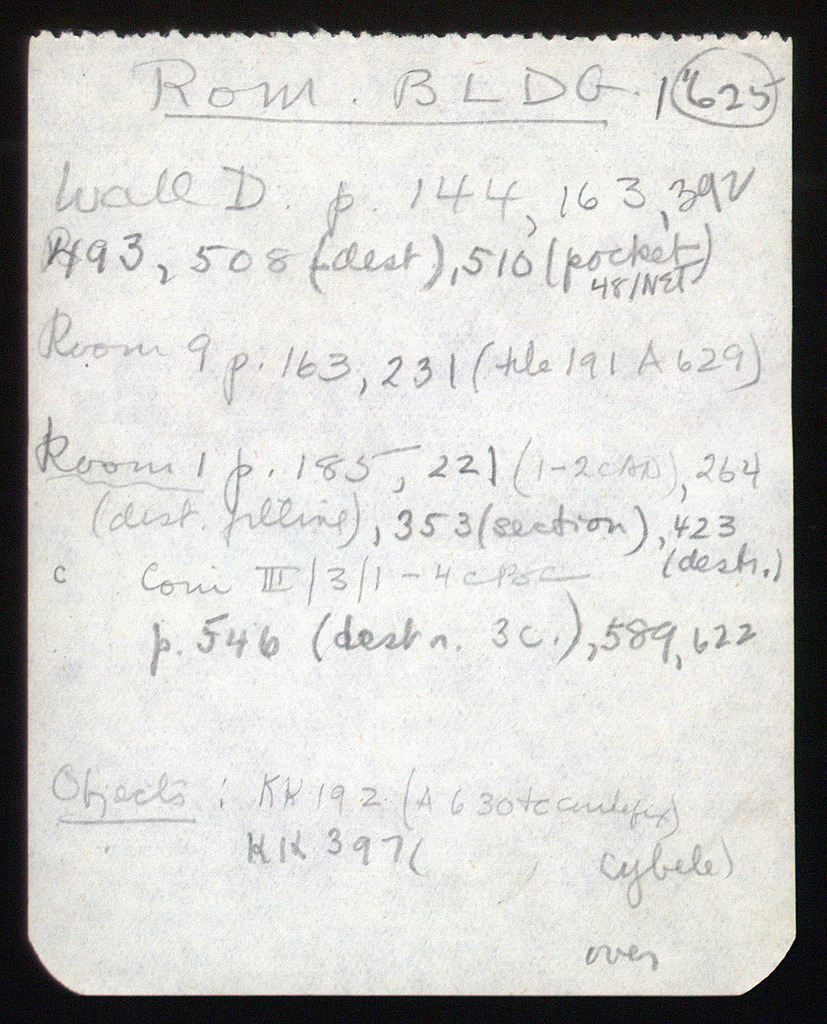 Rom. BLDG. 1 625
Wall D. p. 144, 163, 392
493, 508 (dest), 510 (pocket
48/NET)
Room 9 p. 163, 231 (tile 191 A 629)
Room 1 p. 185, 221 (1-2c AD), 264
(dest. filling), 353 (section), 423
(destn.)
c Coin III/3/1 - 4c
p. 546 (destn. 3c.), 589, 622
Objects: KK 192 (A 630 tc antefix)
KK 397 ( cybele)
over